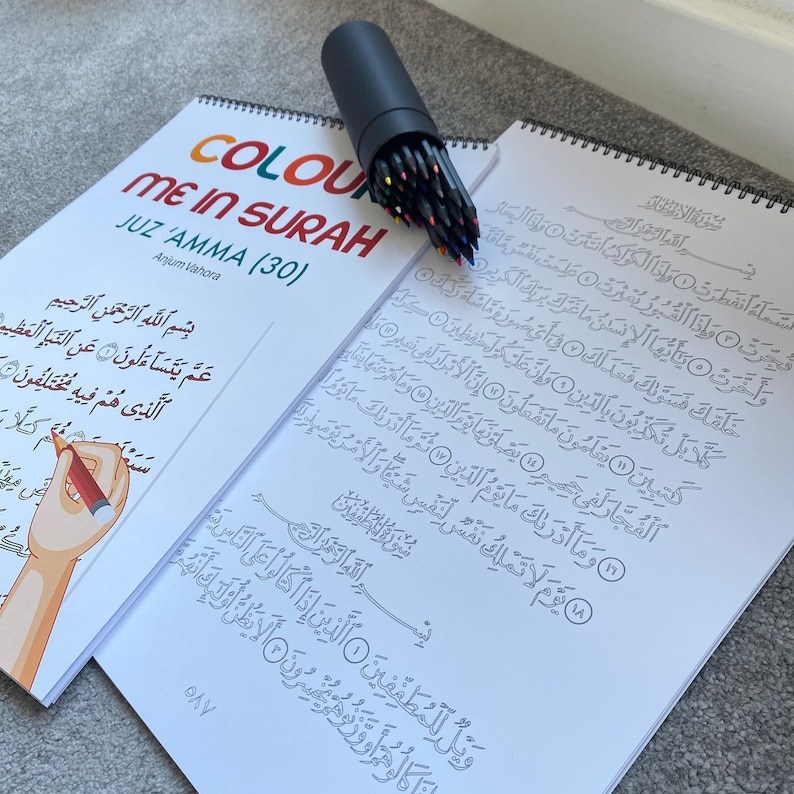 COLOUR
ME IN SURAH
JUZ 'AMMA (30)
Anjum Vahora
بِسْمِ ٱللَّهِ ٱلرَّحْمَٰنِ ٱلرَّحِيمِ
عَمَّ يَتَسَآءَلُونَ ١ عَنِ ٱلنَّبَإِ ٱلْعَظِيمِ
ٱلَّذِى هُمْ فِيهِ مُخْتَلِفُونَ ٣
ثُمَّ كَلَّا
سُورَةُ الانفِطَارِ
بِسْمِ ٱللَّهِ ٱلرَّحْمَٰنِ ٱلرَّحِيمِ
ٱلسَّمَآءُ ٱنفَطَرَتْ ١ وَإِذَا ٱلْكَوَاكِبُ ٱنتَثَرَتْ ٢ وَإِذَا ٱلْبِحَارُ
فُجِّرَتْ ٣ وَإِذَا ٱلْقُبُورُ بُعْثِرَتْ ٤ عَلِمَتْ نَفْسٌ مَّا قَدَّمَتْ
وَأَخَّرَتْ ٥ يَٰٓأَيُّهَا ٱلْإِنسَٰنُ مَا غَرَّكَ بِرَبِّكَ ٱلْكَرِيمِ ٦
خَلَقَكَ فَسَوَّىٰكَ فَعَدَلَكَ ٧ فِىٓ أَىِّ صُورَةٍ مَّا شَآءَ رَكَّبَكَ ٨
كَلَّا بَلْ تُكَذِّبُونَ بِٱلدِّينِ ٩ وَإِنَّ عَلَيْكُمْ لَحَٰفِظِينَ ١٠
كَٰتِبِينَ ١١ يَعْلَمُونَ مَا تَفْعَلُونَ ١٢ إِنَّ ٱلْأَبْرَارَ لَفِى نَعِيمٍ ١٣
ٱلْفُجَّارَ لَفِى جَحِيمٍ ١٤ يَصْلَوْنَهَا يَوْمَ ٱلدِّينِ ١٥ وَمَا هُمْ عَنْهَا
١٦ وَمَآ أَدْرَىٰكَ مَا يَوْمُ ٱلدِّينِ ١٧ ثُمَّ مَآ أَدْرَىٰكَ مَا يَوْمُ
١٨ يَوْمَ لَا تَمْلِكُ نَفْسٌ لِّنَفْسٍ شَيْـًٔا وَٱلْأَمْرُ يَوْمَئِذٍ لِّلَّهِ
سُورَةُ المُطَفِّفِينَ
بِسْمِ ٱللَّهِ ٱلرَّحْمَٰنِ ٱلرَّحِيمِ
وَيْلٌ لِّلْمُطَفِّفِينَ ١ ٱلَّذِينَ إِذَا ٱكْتَالُوا۟ عَلَى ٱلنَّاسِ
كَالُوهُمْ أَو وَّزَنُوهُمْ يُخْسِرُونَ ٣ أَلَا يَظُنُّ أُو۟لَٰٓئِكَ أَنَّهُم
٥٨٧